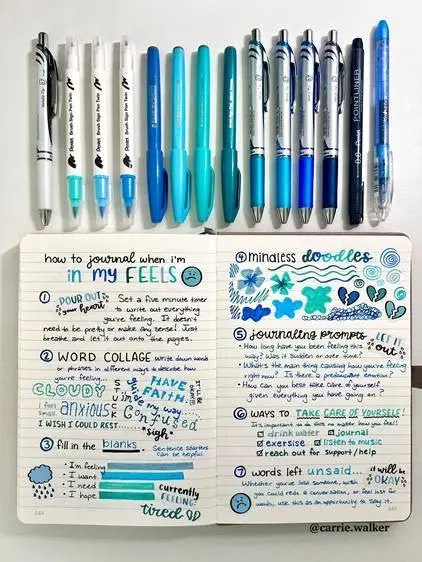 Pentel Brush Sign Pen Twin
Pentel Brush Sign Pen Twin
Pentel Brush Sign Pen Twin
POINTLINER
how to journal when i'm
in my FEELS
① POUR OUT your heart
Set a five minute timer
to write out everything
you're feeling. It doesn't
need to be pretty or make any sense! Just
breathe and let it out onto the pages.
② WORD COLLAGE Write down words
or phrases in different ways to describe how
you're feeling...
CLOUDY
STUCK
HAVE FAITH.
guide my way
I feel small
anxious
confused
I WISH I COULD REST
*sigh*
③ fill in the blanks
Sentence starters
can be helpful.
• I'm feeling
• I want
• I need
• I hope
currently
FEELING:
tired
④ mindless doodles
⑤ journaling prompts
LET IT out
• How long have you been feeling this
way? Was it sudden or over time?
• What's the main thing causing how you're feeling
right now? Is there a predominant emotion?
• How can you best take care of yourself
given everything you have going on?
⑥ WAYS to TAKE CARE OF YOURSELF!
It's important to do this no matter how you feel!
drink water
journal
exercise
listen to music
reach out for support/help
⑦ words left unsaid...
it will be OKAY
Whether you lost someone, wish
you could redo a conversation, or feel lost for
words, use this as an opportunity to say it.
@carrie.walker